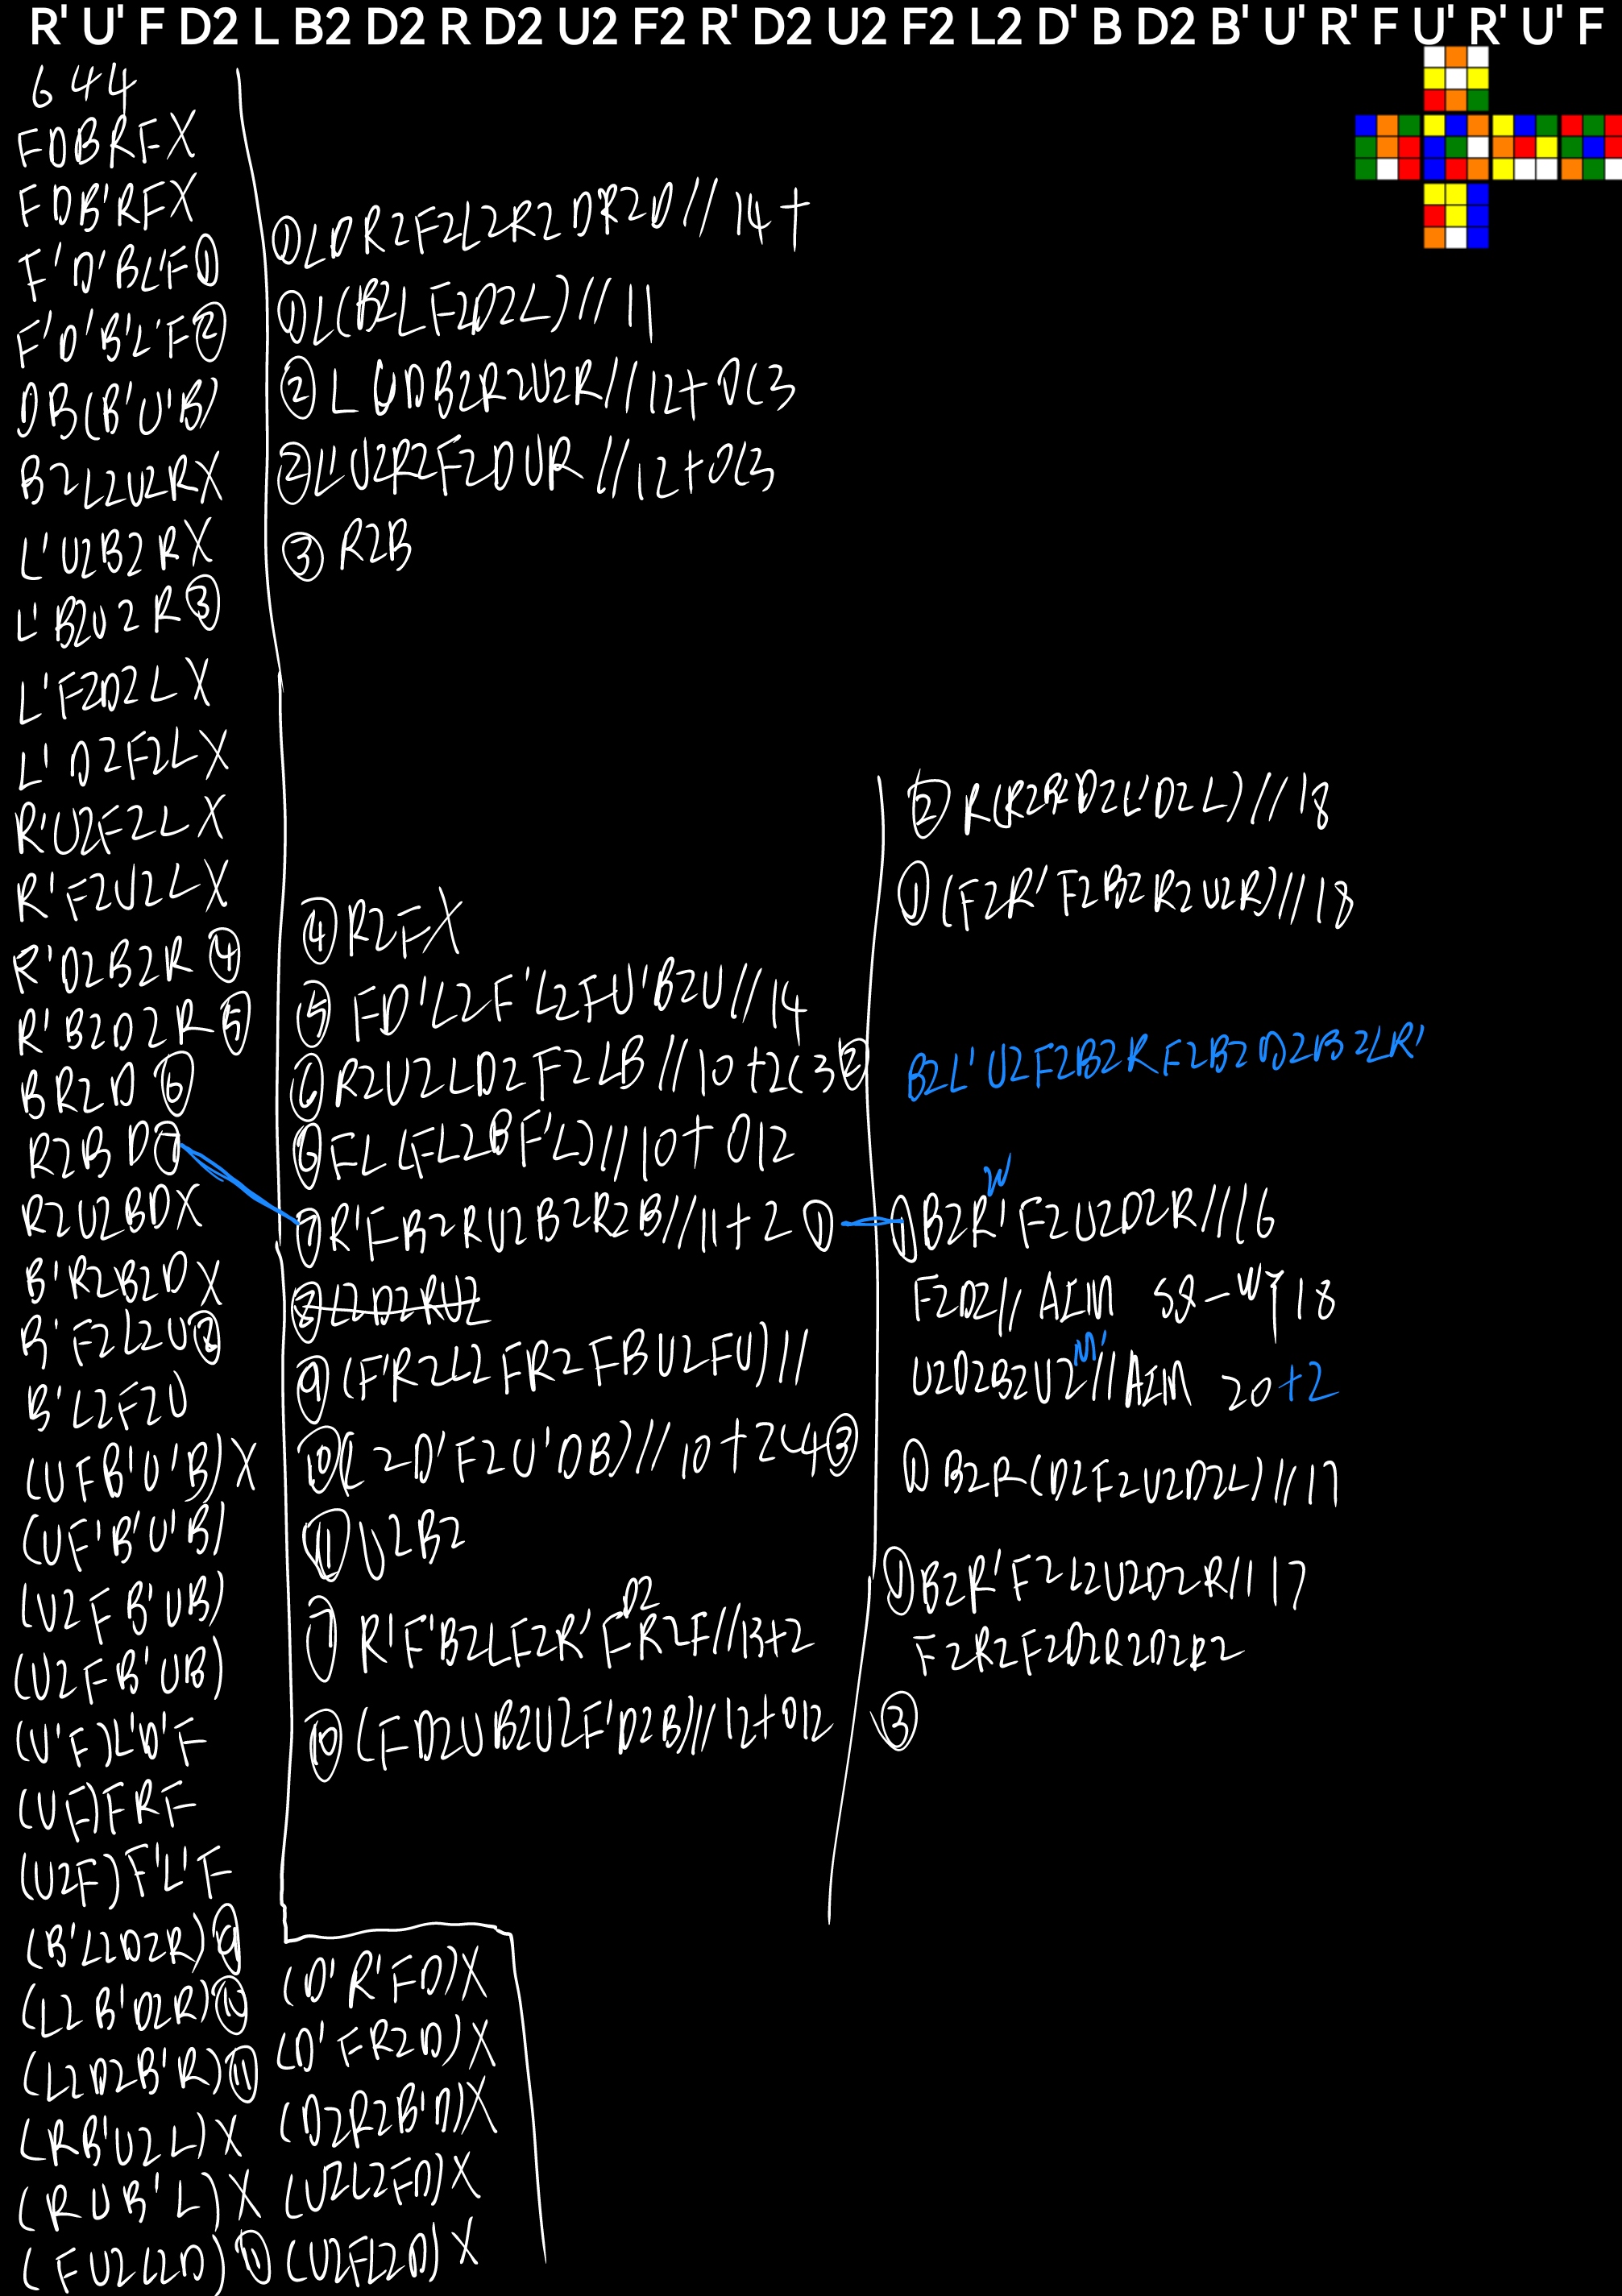 R' U' F D2 L B2 D2 R D2 U2 F2 R' D2 U2 F2 L2 D' B D2 B' U' R' F U' R' U' F
644
FDBRFX
FDB'RFX
F'D'BL'F①
F'D'B'L'F②
DB(B'U'B)
B2L2U2RX
L'U2B2RX
L'B2U2R③
L'F2D2LX
L'D2F2LX
R'U2F2LX
R'F2U2LX
R'D2B2R④
R'B2D2R⑤
BR2D⑥
R2BD⑦
R2U2BDX
B'R2B2DX
B'F2L2U⑧
B'L2F2U
(UFB'U'B)X
(UF'B'U'B)
(U2FB'UB)
(U2FB'UB)
(U'F)L'D'F
(UF)FRF
(U2F)F'L'F
(B'L2D2R)⑨
(L2B'D2R)⑩
(L2D2B'R)⑪
(RB'U2L)X
(RUB'L)X
(FU2L2D)⑪
①LDR2F2L2R2DR2D//14+
①L(B2LF2D2L)//11
②LUDB2R2U2R//12+0C3
②L'U2R2F2DUR//12+0C3
③R2B
④R2FX
⑤FD'L2F'L2FU'B2U//14
⑥R2U2LD2F2LB//10+2C3②
⑥FL(FL2BF'L)//10+012
⑦R'FB2RU2B2R2B//11+2①
⑧L2D2RU2
⑨(F'R2L2FR2FBU2FU)//
⑩(L2D'F2U'DB)//10+2C4③
⑪U2B2
D2
⑦R'F'B2LF2R'FR2F//13+2
⑩(FD2UB2U2F'D2B)//12+012
(D'R'FD)X
(D'FR2D)X
(D2R2B'D)X
(U2L2FD)X
(U2FL2D)X
②R(R2B'D2L'D2L)//18
①(F2R'F2B2R2U2R)//18
B2L'U2F2B2RF2B2D2B2LR'
w
①B2R'F2U2D2R//16
F2D2//AIM 18
M'
U2D2B2U2//AIM 20+2
①B2R(D2F2U2D2L)//17
①B2R'F2L2U2D2R//17
F2R2F2D2R2D2R2
③